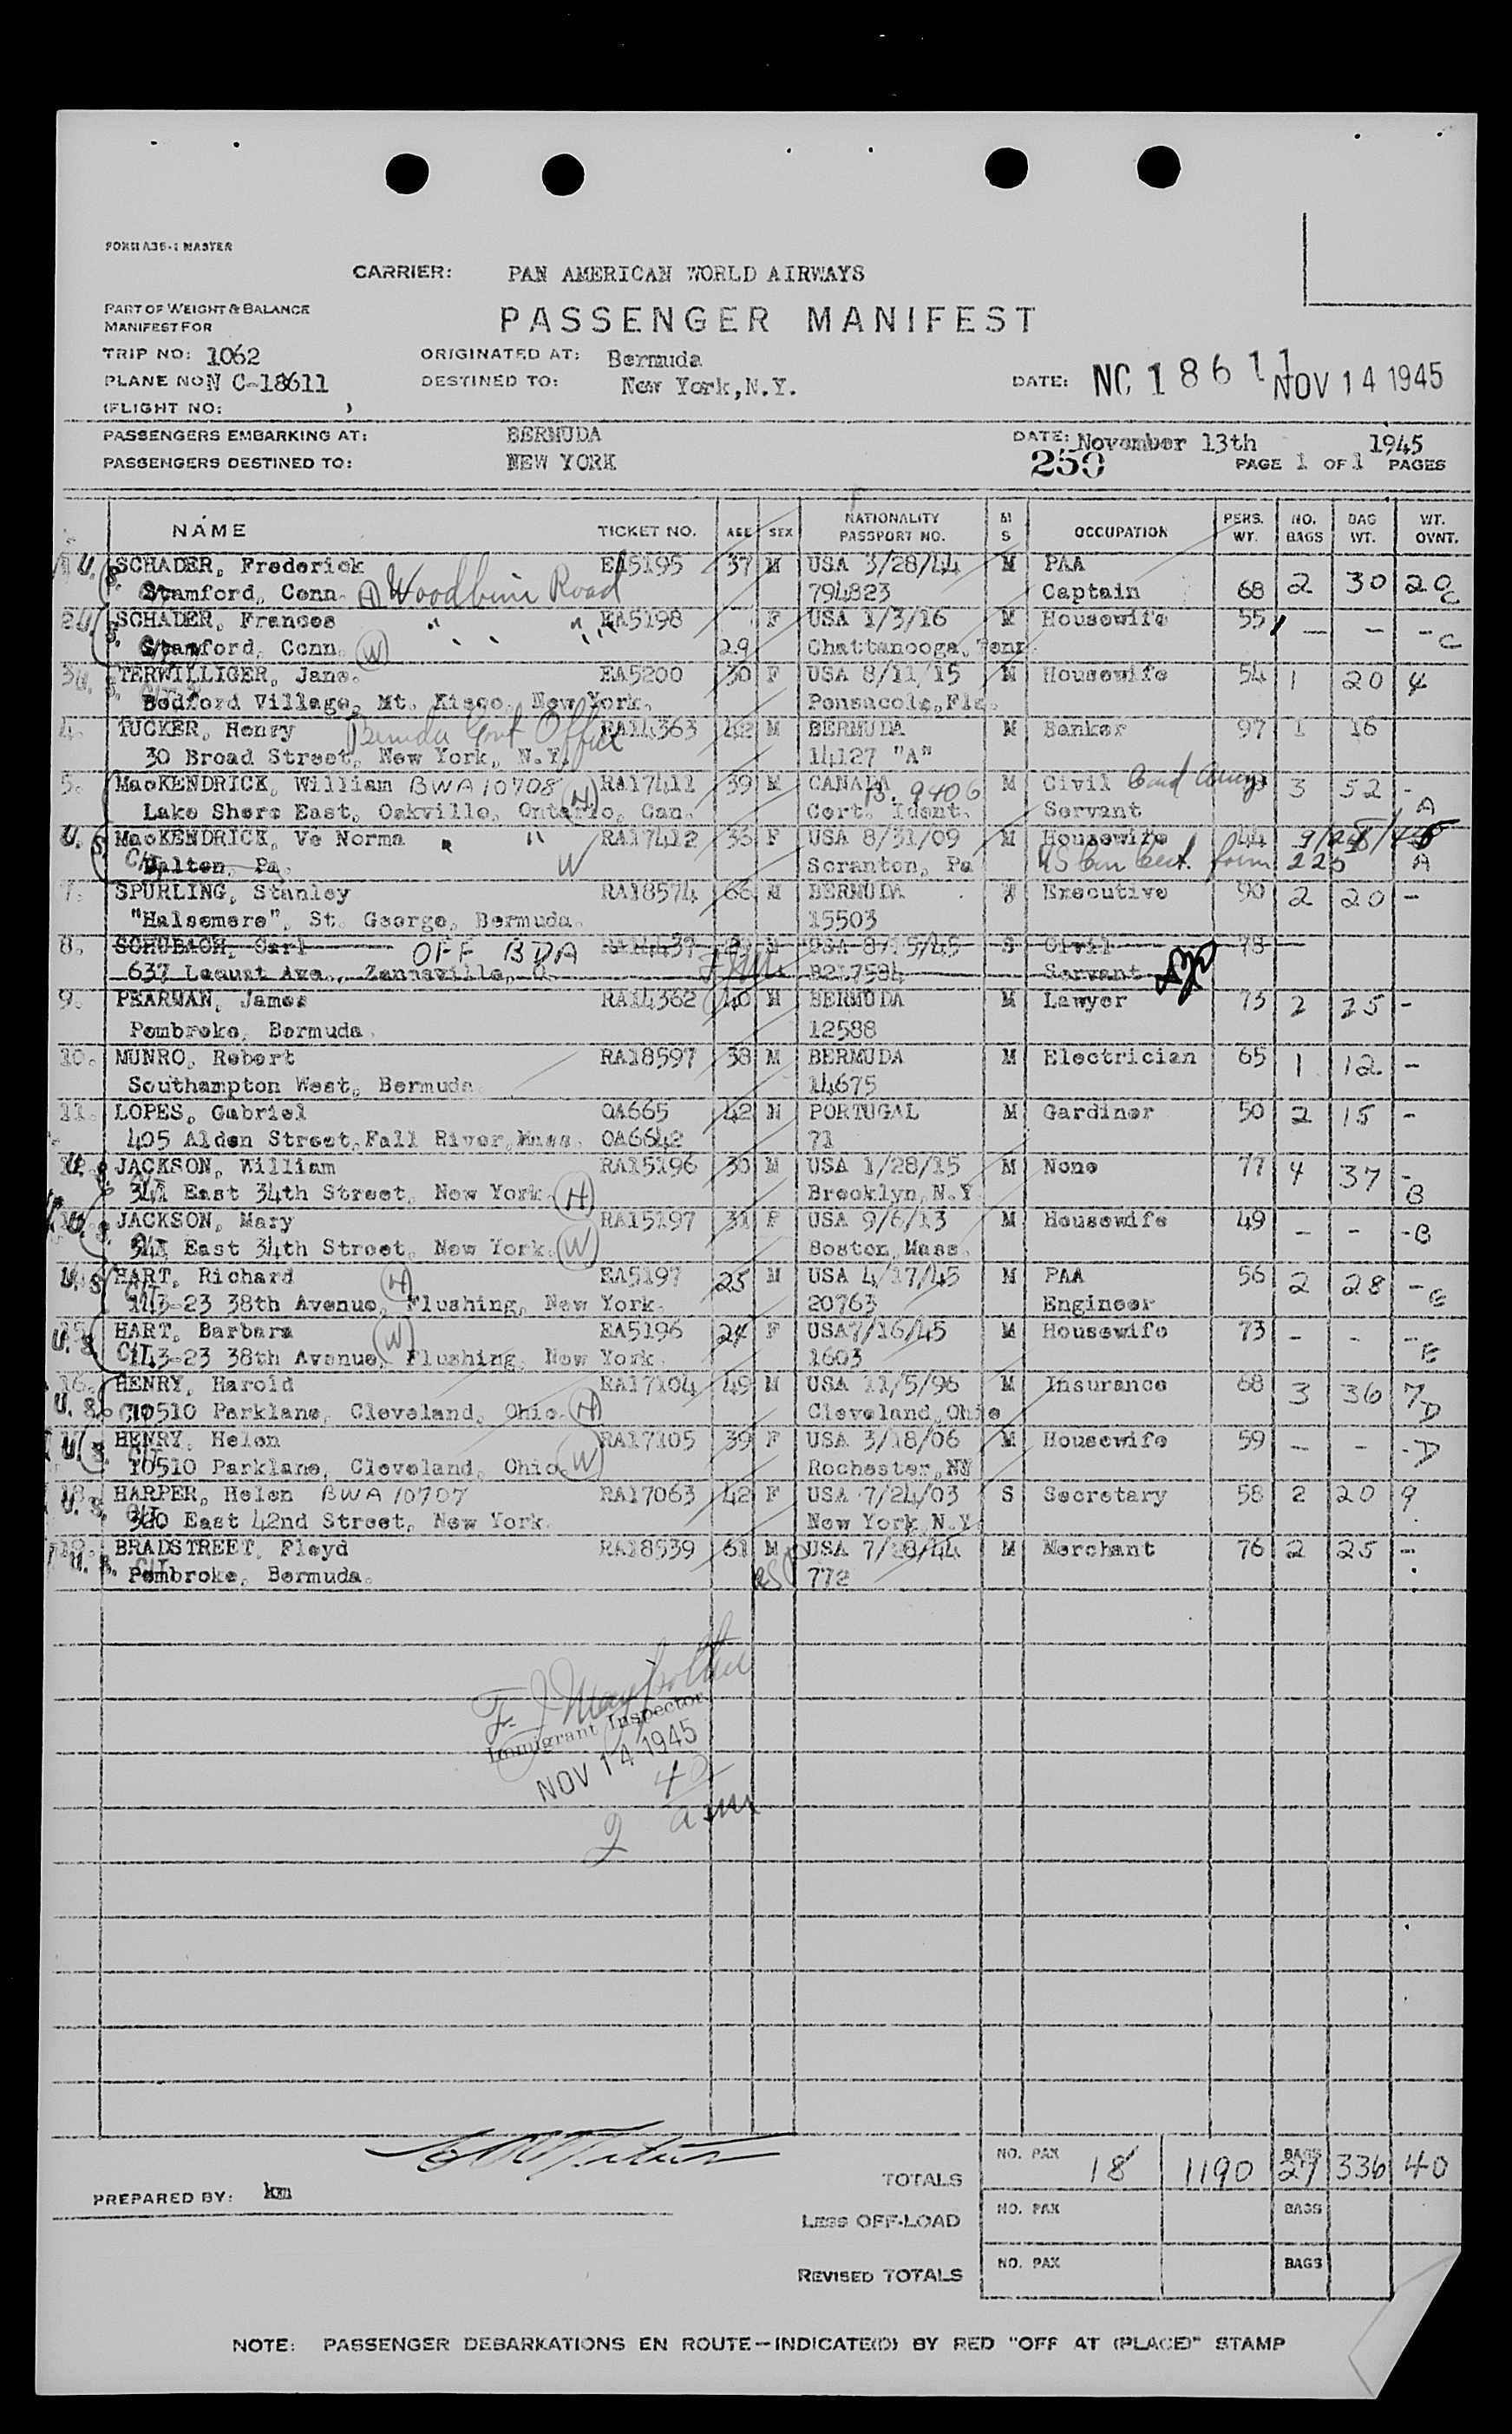 FORM A35-1 MASTER
CARRIER: PAN AMERICAN WORLD AIRWAYS
PART OF WEIGHT & BALANCE
MANIFEST FOR
PASSENGER MANIFEST
TRIP NO: 1062 ORIGINATED AT: Bermuda
PLANE NO: N C-18611 DESTINED TO: New York, N.Y. DATE: NC 18611 NOV 14 1945
(FLIGHT NO: )
PASSENGERS EMBARKING AT: BERMUDA DATE: November 13th 1945
PASSENGERS DESTINED TO: NEW YORK 250 PAGE 1 OF 1 PAGES
NAME TICKET NO. AGE SEX NATIONALITY PASSPORT NO. M S OCCUPATION PERS. WT. NO. BAGS BAG WT. WT. OVNT.
1 U.S. SCHADER, Frederick EA5195 37 M USA 3/28/44 M PAA
Stamford, Conn. H Woodbine Road 794823 Captain 68 2 30 20 C
2 U.S. SCHADER, Frances " " " EA5198 F USA 1/3/16 M Housewife 55 - - -
Stamford, Conn. W 29 Chattanooga, Tenn. C
3 U.S. TERWILLIGER, Jane. EA5200 30 F USA 8/11/15 M Housewife 54 1 20 4
Bedford Village, Mt. Kisco, New York. Pensacola, Fla.
4. TUCKER, Henry Bermuda Govt Office RA14363 42 M BERMUDA M Banker 97 1 16
30 Broad Street, New York, N.Y. 14127 "A"
5. MacKENDRICK, William BWA 10708 RA17411 39 M CANADA 9406 M Civil 3 52 -
Lake Shore East, Oakville, Ontario, Can. H Cert. Ident. Servant A
U.S. MacKENDRICK, Ve Norma " " RA17412 36 F USA 8/31/09 M Housewife 44
Cit Dalton, Pa. W Scranton, Pa form 225 A
7. SPURLING, Stanley RA18574 66 M BERMUDA W Executive 90 2 20 -
"Halsemere", St. George, Bermuda. 15503
8. SCHUBACH, Carl OFF BDA M S Civil 78
637 Locust Ave., Zannsville, O. Servant
9. PEARMAN, James RA14362 40 M BERMUDA M Lawyer 73 2 25 -
Pembroke, Bermuda. 12588
10. MUNRO, Robert RA18597 38 M BERMUDA M Electrician 65 1 12 -
Southampton West, Bermuda. 14675
11. LOPES, Gabriel OA665 42 M PORTUGAL M Gardiner 50 2 15 -
405 Alden Street, Fall River, Mass. OA6642 71
12. U.S. JACKSON, William RA15196 30 M USA 1/28/15 M None 77 4 37 -
341 East 34th Street, New York. H Brooklyn, N.Y. B
U.S. JACKSON, Mary RA15197 31 F USA 9/6/13 M Housewife 49 - - - B
341 East 34th Street, New York. W Boston, Mass.
U.S. HART, Richard H EA5197 25 M USA 4/17/45 M PAA 56 2 28 -
143-23 38th Avenue, Flushing, New York. 20763 Engineer E
15. U.S. HART, Barbara W EA5196 24 F USA 7/16/45 M Housewife 73 - - -
Cit 143-23 38th Avenue, Flushing, New York. 1603 E
16. U.S. HENRY, Harold RA17104 49 M USA 11/5/96 M Insurance 68 3 36 7
10510 Parklane, Cleveland, Ohio. H Cleveland, Ohio D
U.S. HENRY, Helen RA17105 39 F USA 3/18/06 M Housewife 59 - - - D
10510 Parklane, Cleveland, Ohio. W Rochester, NY
18. U.S. HARPER, Helen BWA 10707 RA17063 42 F USA 7/24/03 S Secretary 58 2 20 9
Cit East 42nd Street, New York. New York, N.Y.
19. U.S. BRADSTREET, Floyd RA18539 61 M USA 7/18/44 M Merchant 76 2 25 -
Cit Pembroke, Bermuda. 772
Immigrant Inspector
NOV 14 1945
NO. PAX 18 1190 BAGS 27 336 40
TOTALS
PREPARED BY: km
LESS OFF-LOAD NO. PAX BAGS
REVISED TOTALS NO. PAX BAGS
NOTE: PASSENGER DEBARKATIONS EN ROUTE—INDICATE(D) BY RED "OFF AT (PLACE)" STAMP